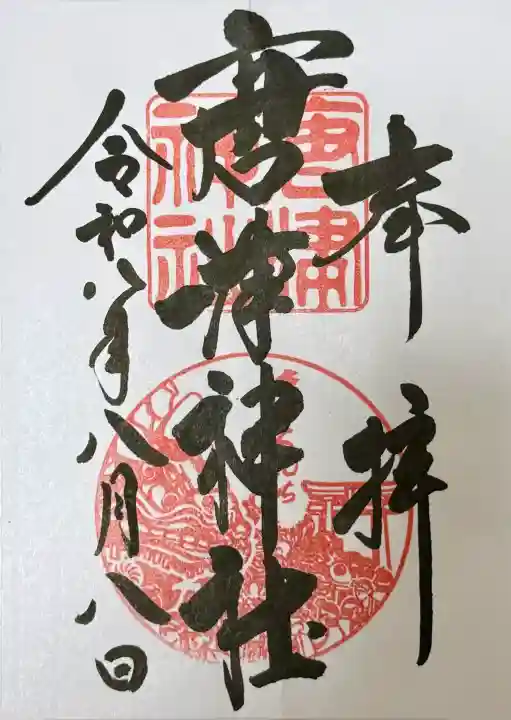 奉拝
唐津神社
令和八年八月八日
唐津
神社